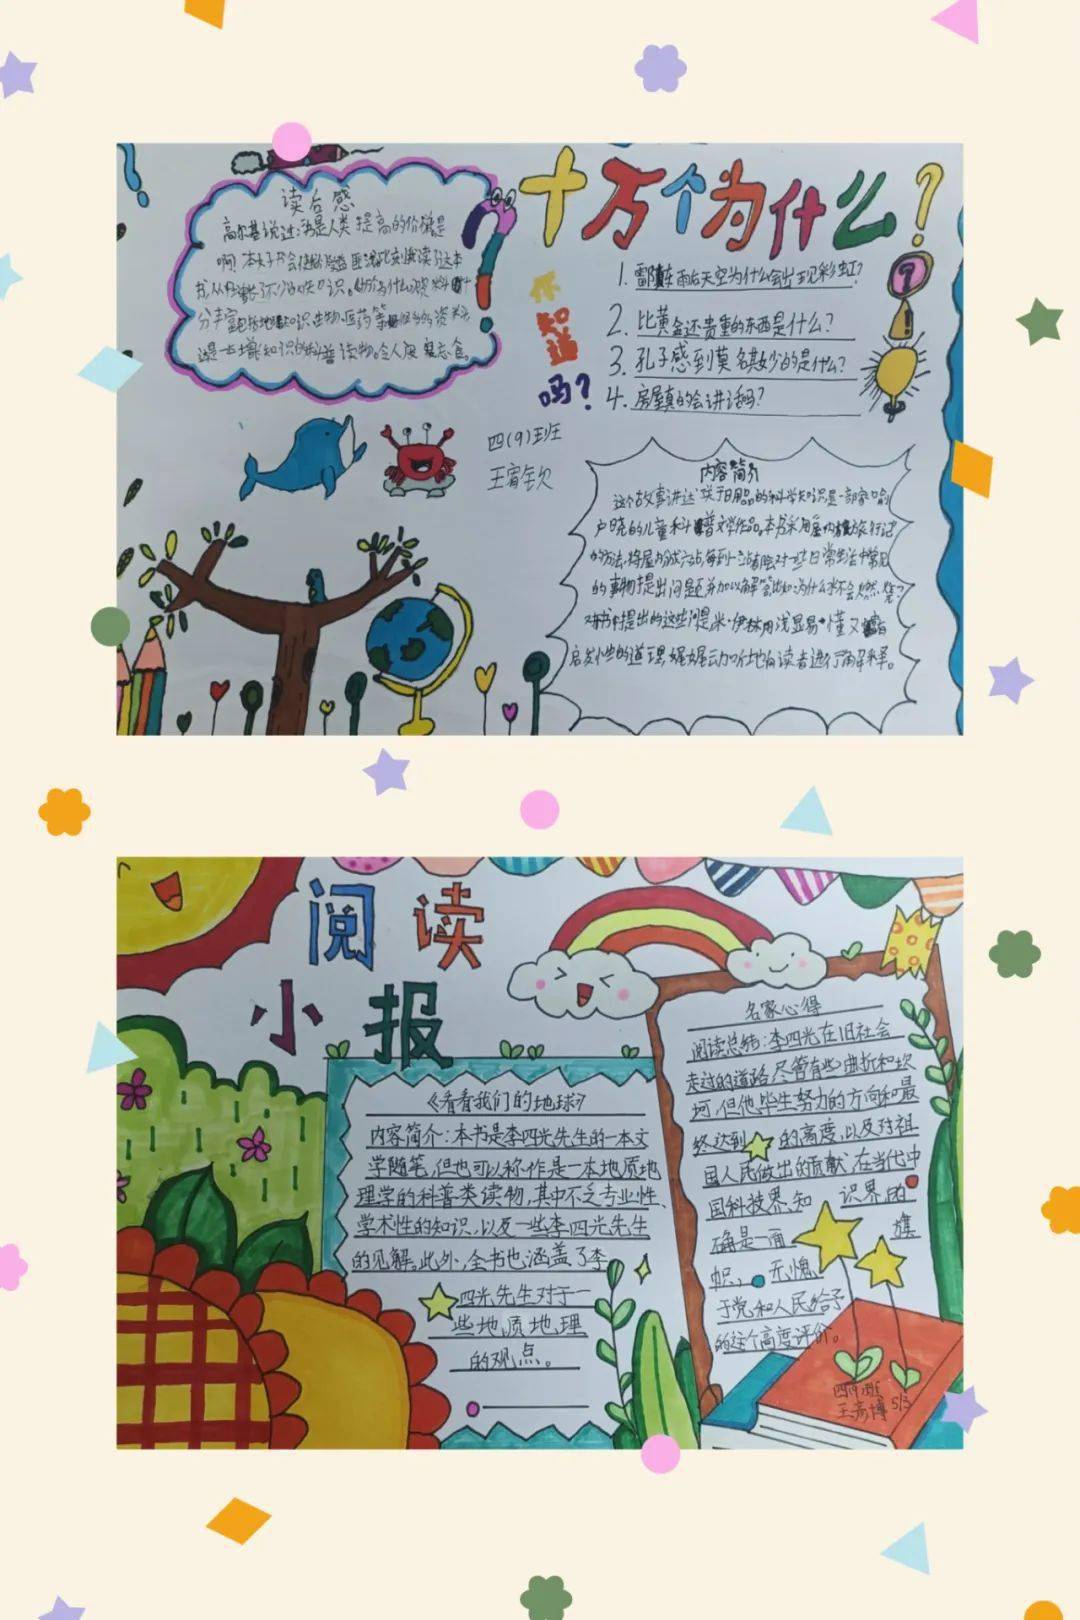 十万个为什么?
读后感
高尔基说过:书是人类提高的价梯是
你知道吗?
1.雷阵雨后天空为什么会出现彩虹?
2.比黄金还贵重的东西是什么?
3.孔子感到莫名其妙的是什么?
4.房屋真的会讲话吗?
四(9)班
内容简介
这个故事讲述关于日用品的科学知识是一部家喻
户晓的儿童科普文学作品。本书采用屋内旅行记
的方法,将屋内分成六站,每到一站都会对一些日常生活中常见
的事物提出问题并加以解答比如:为什么水不会燃烧?
对书中提出的这些问题米·伊林用浅显易懂又
启发性的道理,娓娓动听地向读者进行了解释。
阅读
小报
《看看我们的地球》
内容简介:本书是李四光先生的一本文
学随笔,但也可以称作是一本地质地
理学的科普类读物,其中不乏专业性、
学术性的知识,以及一些李四光先生
的见解。此外,全书也涵盖了李
四光先生对于一
些地质地理
的观点。
名家心得
阅读总结:李四光在旧社会
走过的道路,尽管有些曲折和坎
坷,但他毕生努力的方向和最
终达到的高度,以及对祖
国人民做出的贡献,在当代中
国科技界、知识界的
确是一面旗
帜,无愧
于党和人民给予
的这个高度评价。
四(9)班
王彦博 5/3